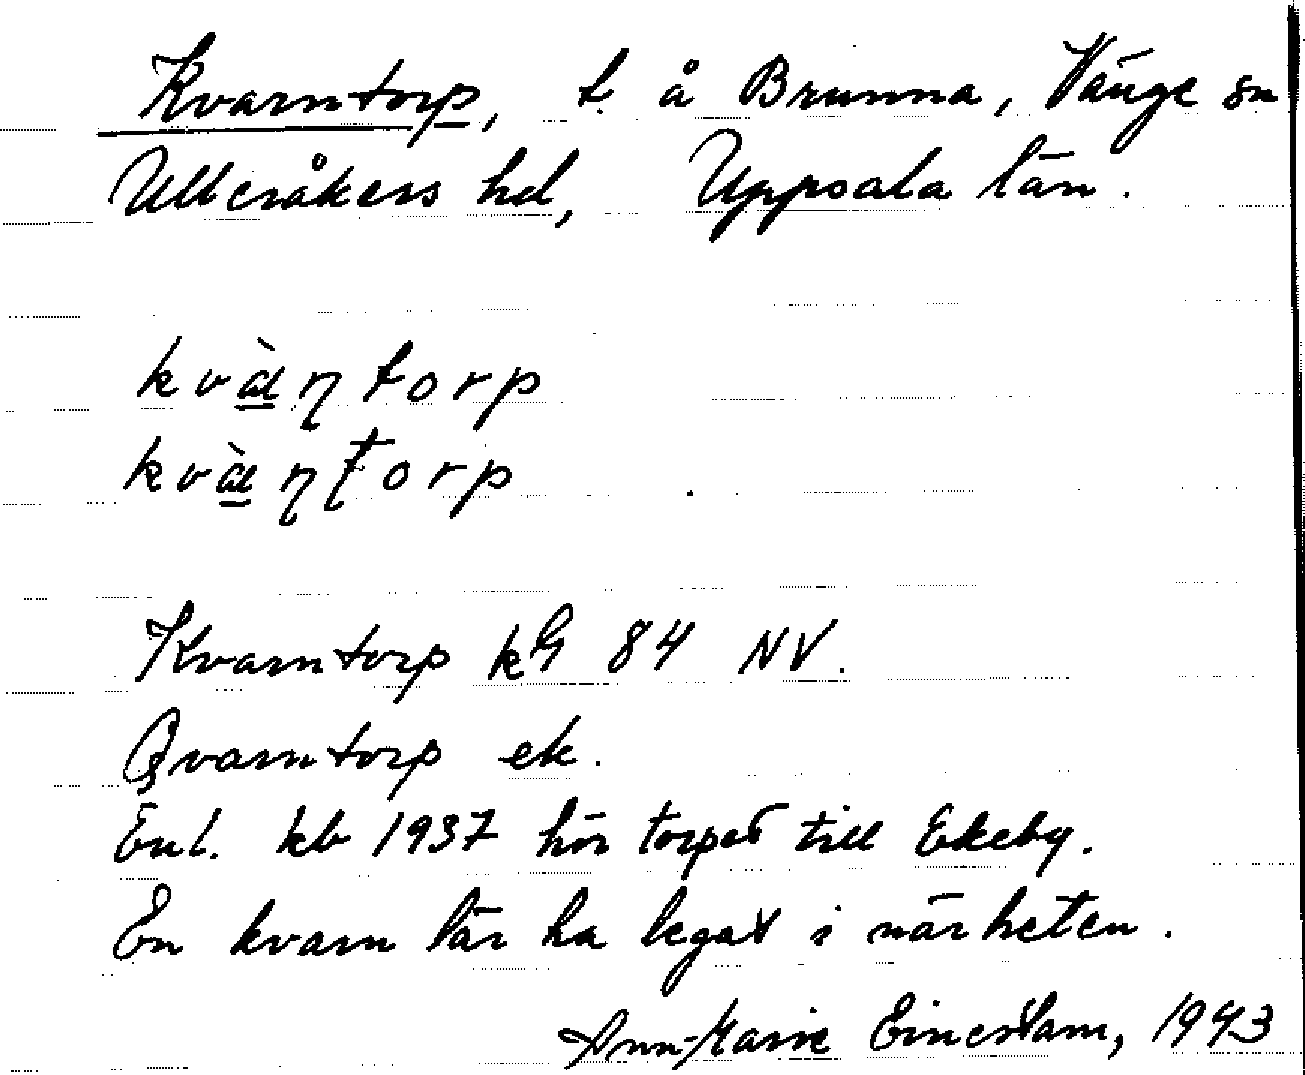 Kvarntorp, t. å Brunna, Vänge sn
Ulleråkers hd, Uppsala län.
kvàɳtorp
kvàɳʈorp
Kvarntorp kG 84 NV.
Qvarntorp ek.
Enl. kb 1937 hör torpet till Ekeby.
En kvarn lär ha legat i närheten.
Ann-Marie 1943